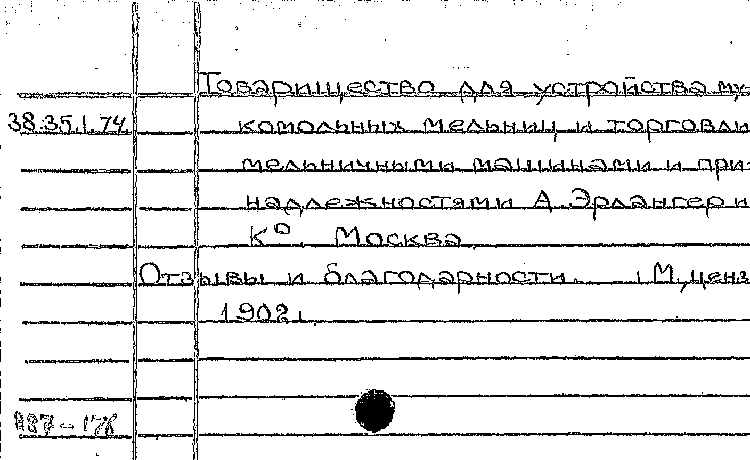 Товарищество для устройства му-
38.35.1.74
комольных мельниц и торговли
мельничными машинами и при-
надлежностями А. Эрлангер и
К⁰. Москва
Отзывы и благодарности. М., ценз.
1902.